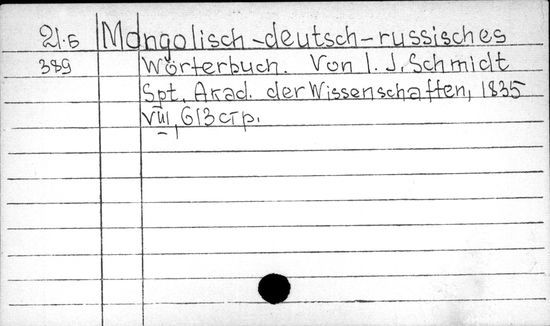 21.5 Mongolisch-deutsch-russisches
389 Wörterbuch. Von I. J. Schmidt
Spt. Akad. der Wissenschaften, 1835
VIII, 613 стр.